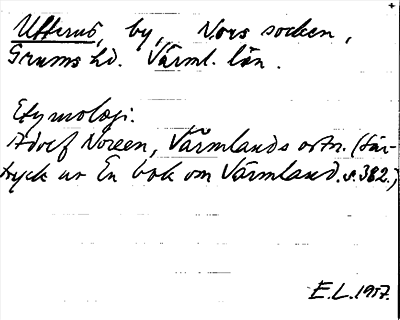 Ufferud, by, Nors socken,
Grums hd. Värml. län.
Etymologi.
Adolf Noreen, Värmlands ortn. (Sär-
tryck ur En bok om Värmland. s. 382.)
E.L. 1957.